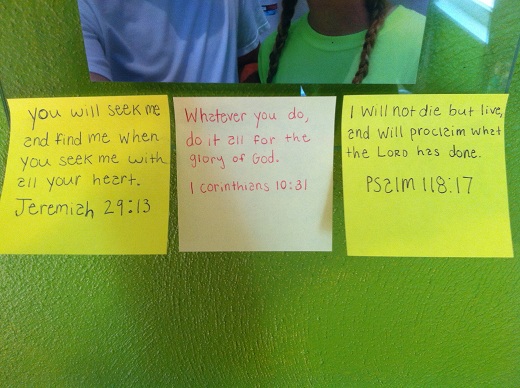 you will seek me
and find me when
you seek me with
all your heart.
Jeremiah 29:13
Whatever you do,
do it all for the
glory of God.
1 corinthians 10:31
I Will not die but live,
and will proclaim what
the LORD has done.
Psalm 118:17